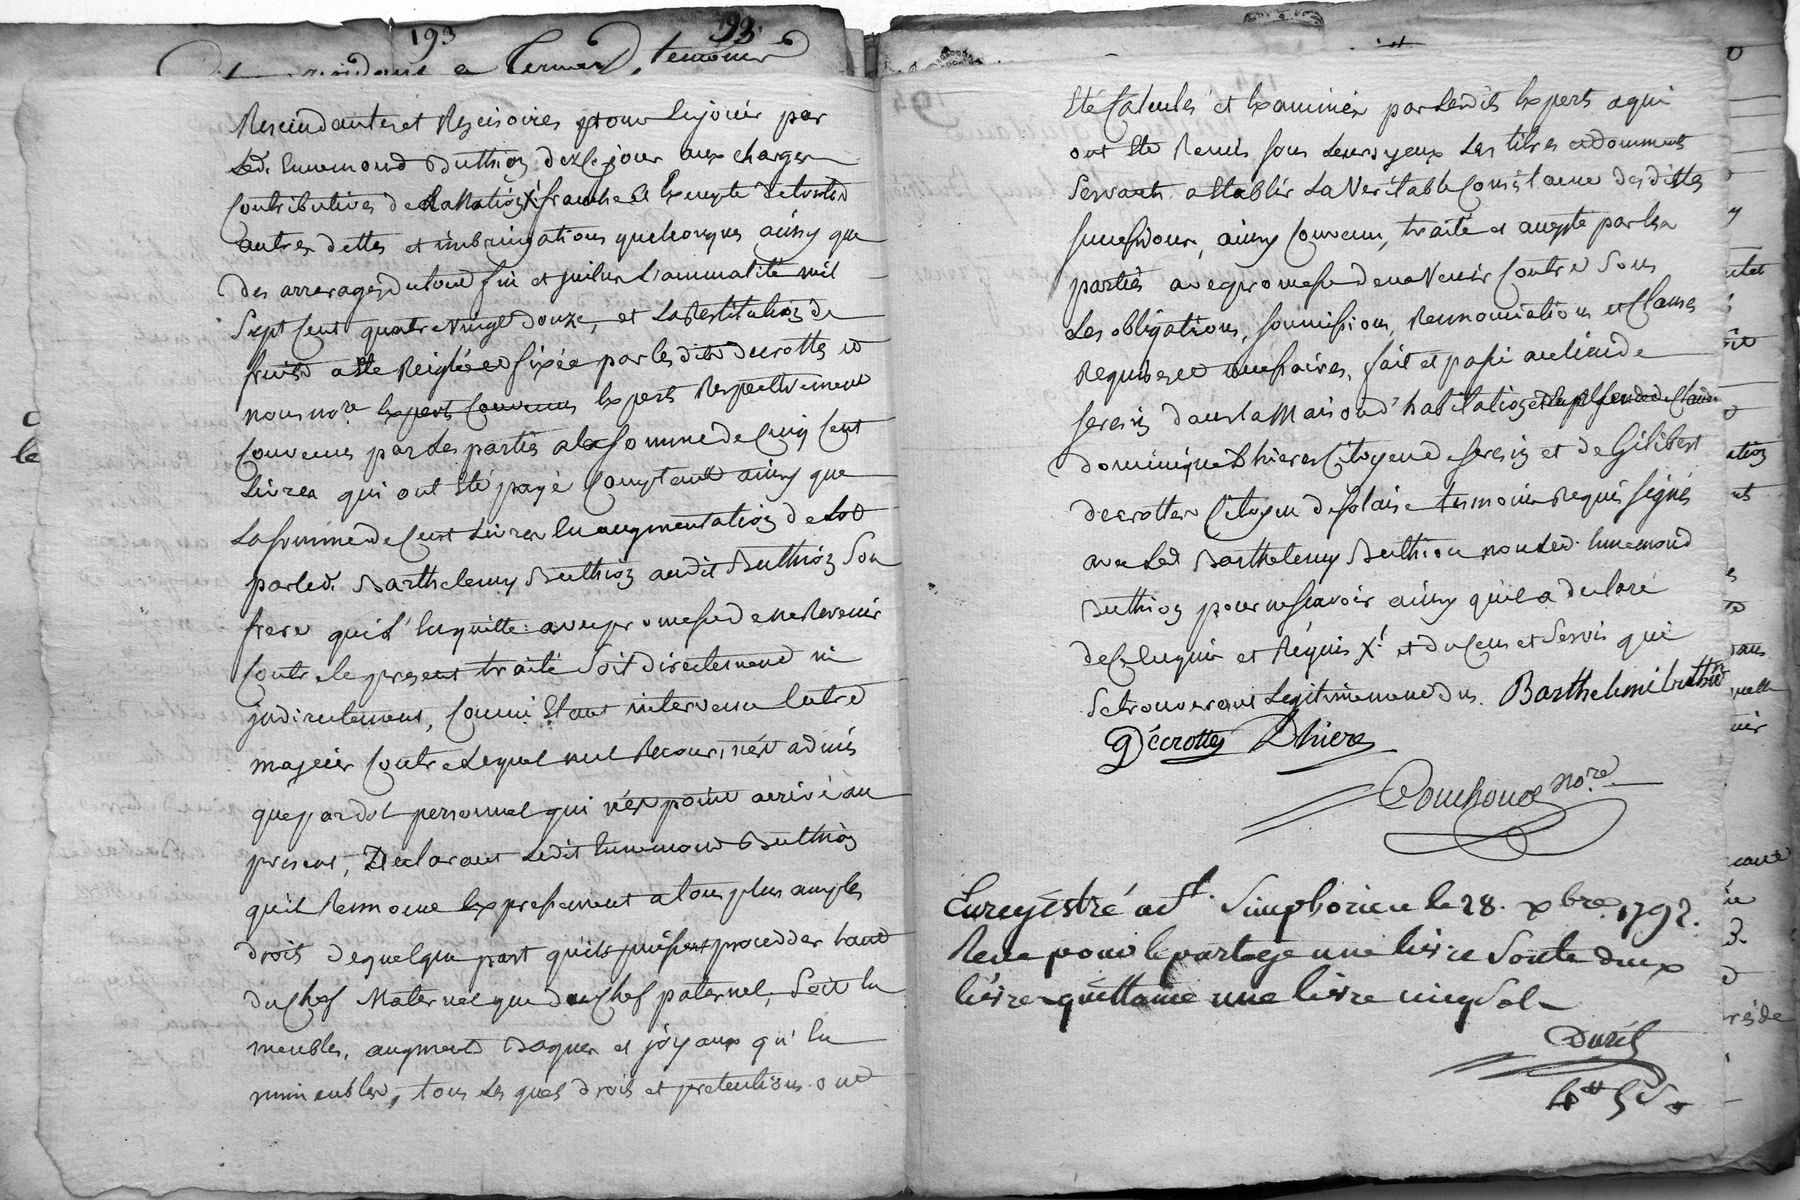 193
193
residant a ternay, temoins
Rescindantes et Rescisoires pour En jouir par
Led. Ennemond Buthion dez ce jour aux charges
Contributives de la Nation X! franche et Exempte de toutes
autres dettes et imbringations quelconques, ainsy que
des arrerages du tout fin et juilus L'annualité mil
Sept Cent quatre Vingt douze, et La Restitution de
fruits a Eté Reiglée et fixée par lesdits decrottes et
nous no.re Experts Convenus Experts Respectivement
Convenus par Les parties a la somme de Cinq Cent
Livres qui ont Eté payé Comptant ainsy que
La somme de Cent Livres En augmentation de Lot
par led. Barthelemy Buthion audit Buthion Son
frere qui L'En quitte avec promesse de ne Revenir
Contre le present traité Soit directement ni
indirectement, Comme Etant intervenu Entre
majeur Contre Lequel nul Recours n'est admis
que par dol personnel qui n'est point arrivé au
present, Declarant Ledit Ennemond Buthion
qu'il Renonce Expressement a tous plus amples
droits de quelque part qu'ils puissent procedder tant
du Chef Maternel que du Chef paternel, Soit En
meubles, augment Bagues et joyaux qu'En
immeubles, tous Lesquels droits et pretentions ont
Eté Calculés et Examinés par Lesdits Experts a qui
ont Eté Remis sous Leurs yeux Les titres et documents
Servants a Etablir La Veritable Consistance desdittes
successions, ainsy Convenu, traité et accepté par les
parties avec promesse de ne Venir Contre Sous
Les obligations, soumissions, Rennonciations et Clauses
Requises et necessaires, fait et passé au lieu de
sereizin dans la Maison d'habitation et En presence de Claude
dominique Dhieres Citoyen de sereizin et de Gilibert
decrottes Citoyen de Solaise temoins Requis signés
avec Led Barthelemy Buthion non Led. Ennemond
Buthion pour ne scavoir ainsy qu'il a declaré
de Ce Enquis et Requis X! et du Cens et Servis qui
Se trouverons Legitimement dus. Barthelemi buthion
G Décrottes Dhieres
Couchoud no.re
Enregistré a St. Simphorien le 28. xbre. 1792.
Recu pour le partage une livre Soute deux
livres quittance une livre cinq Sols
4tt 5 s